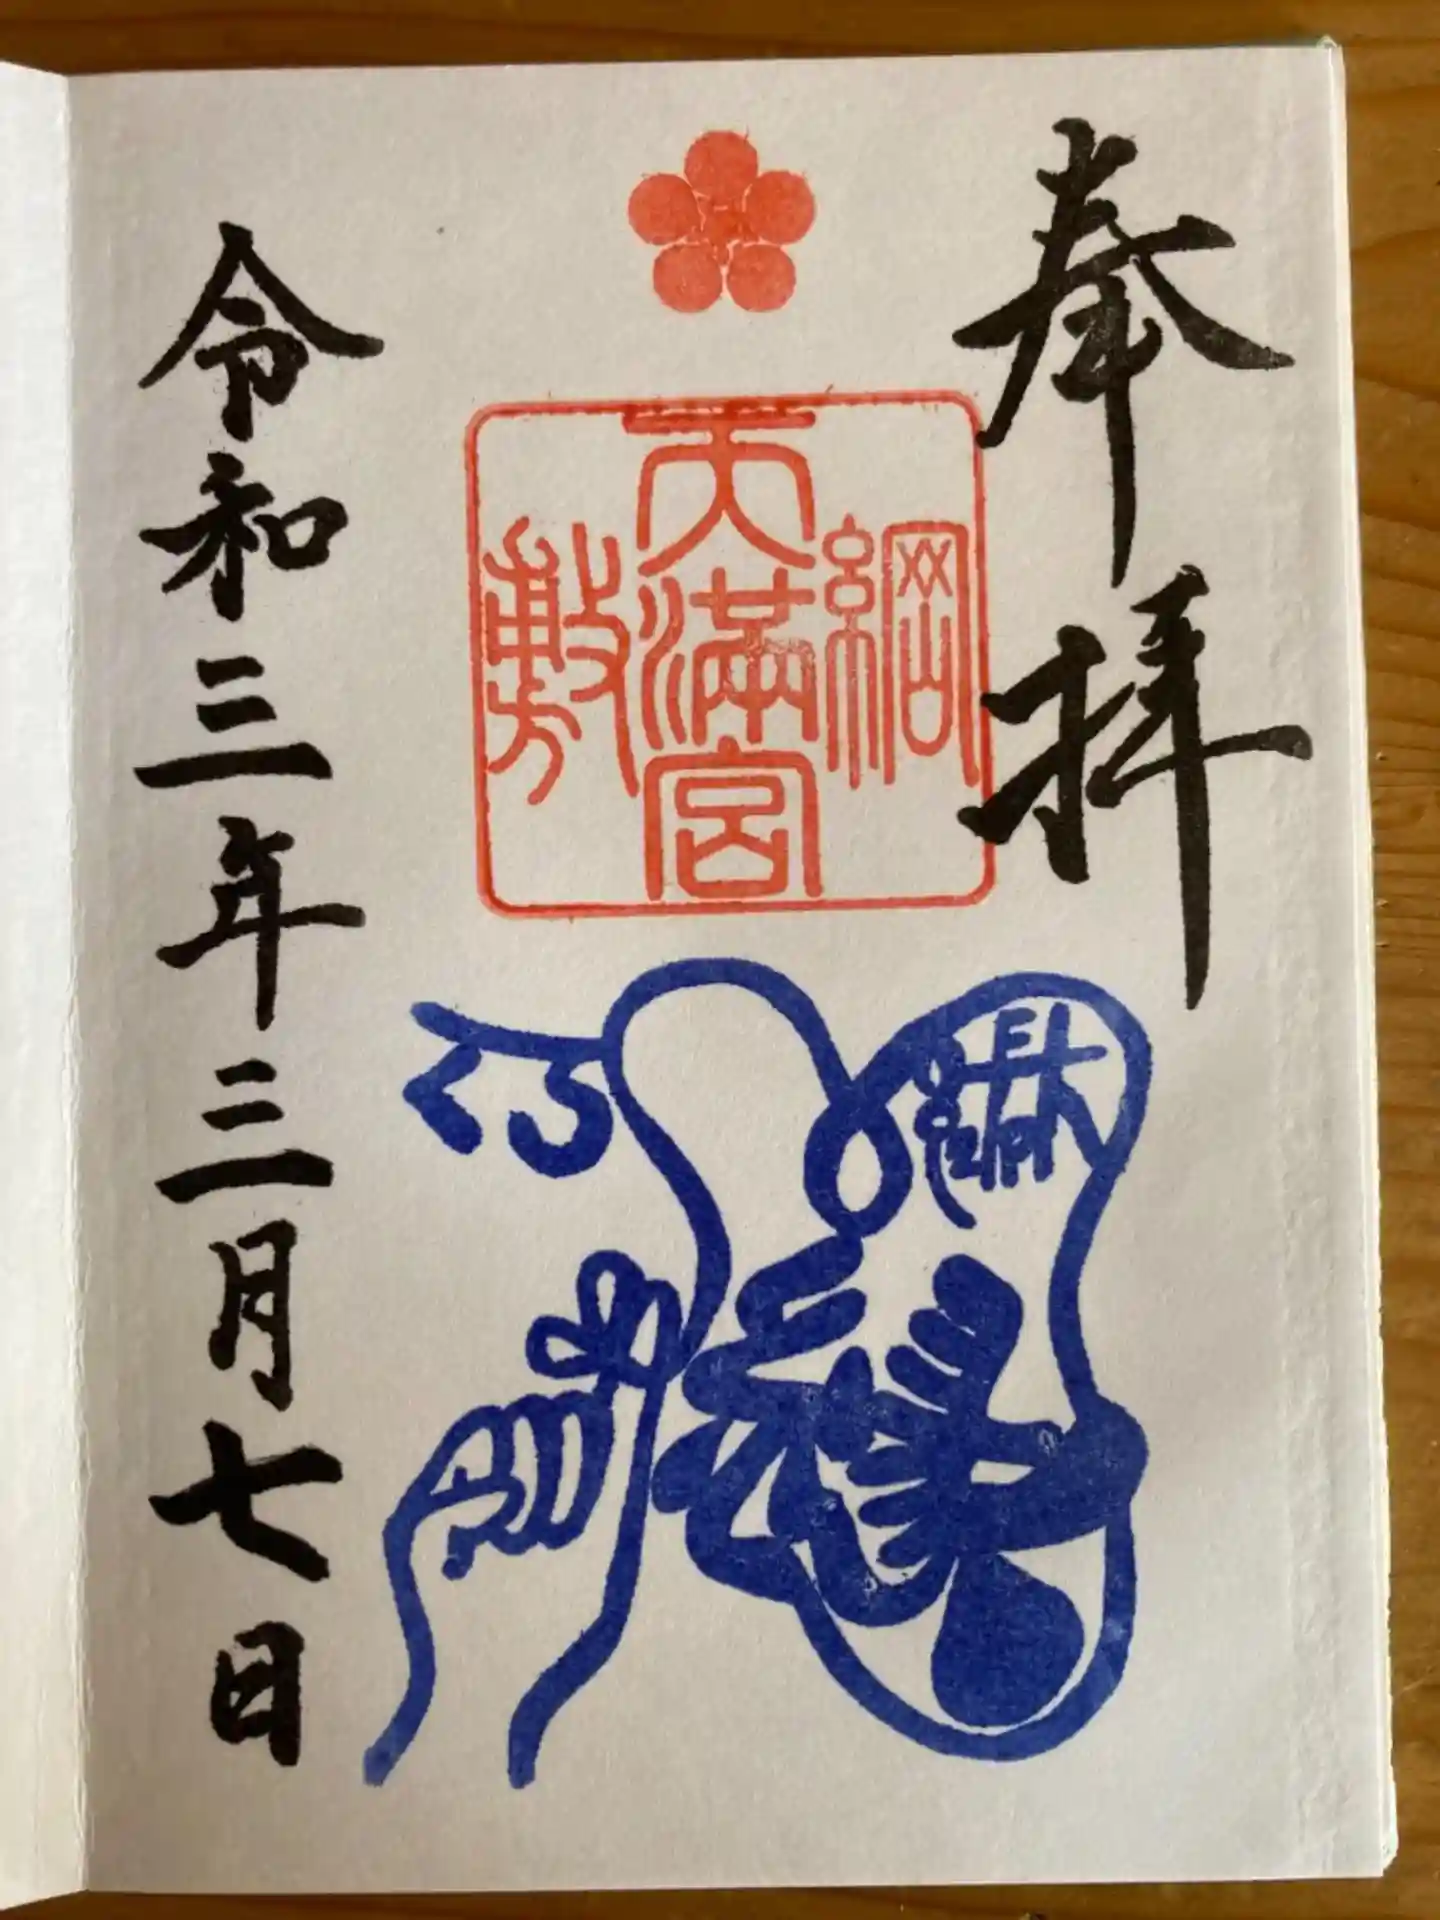 奉拝
綱敷天満宮
令和三年三月七日